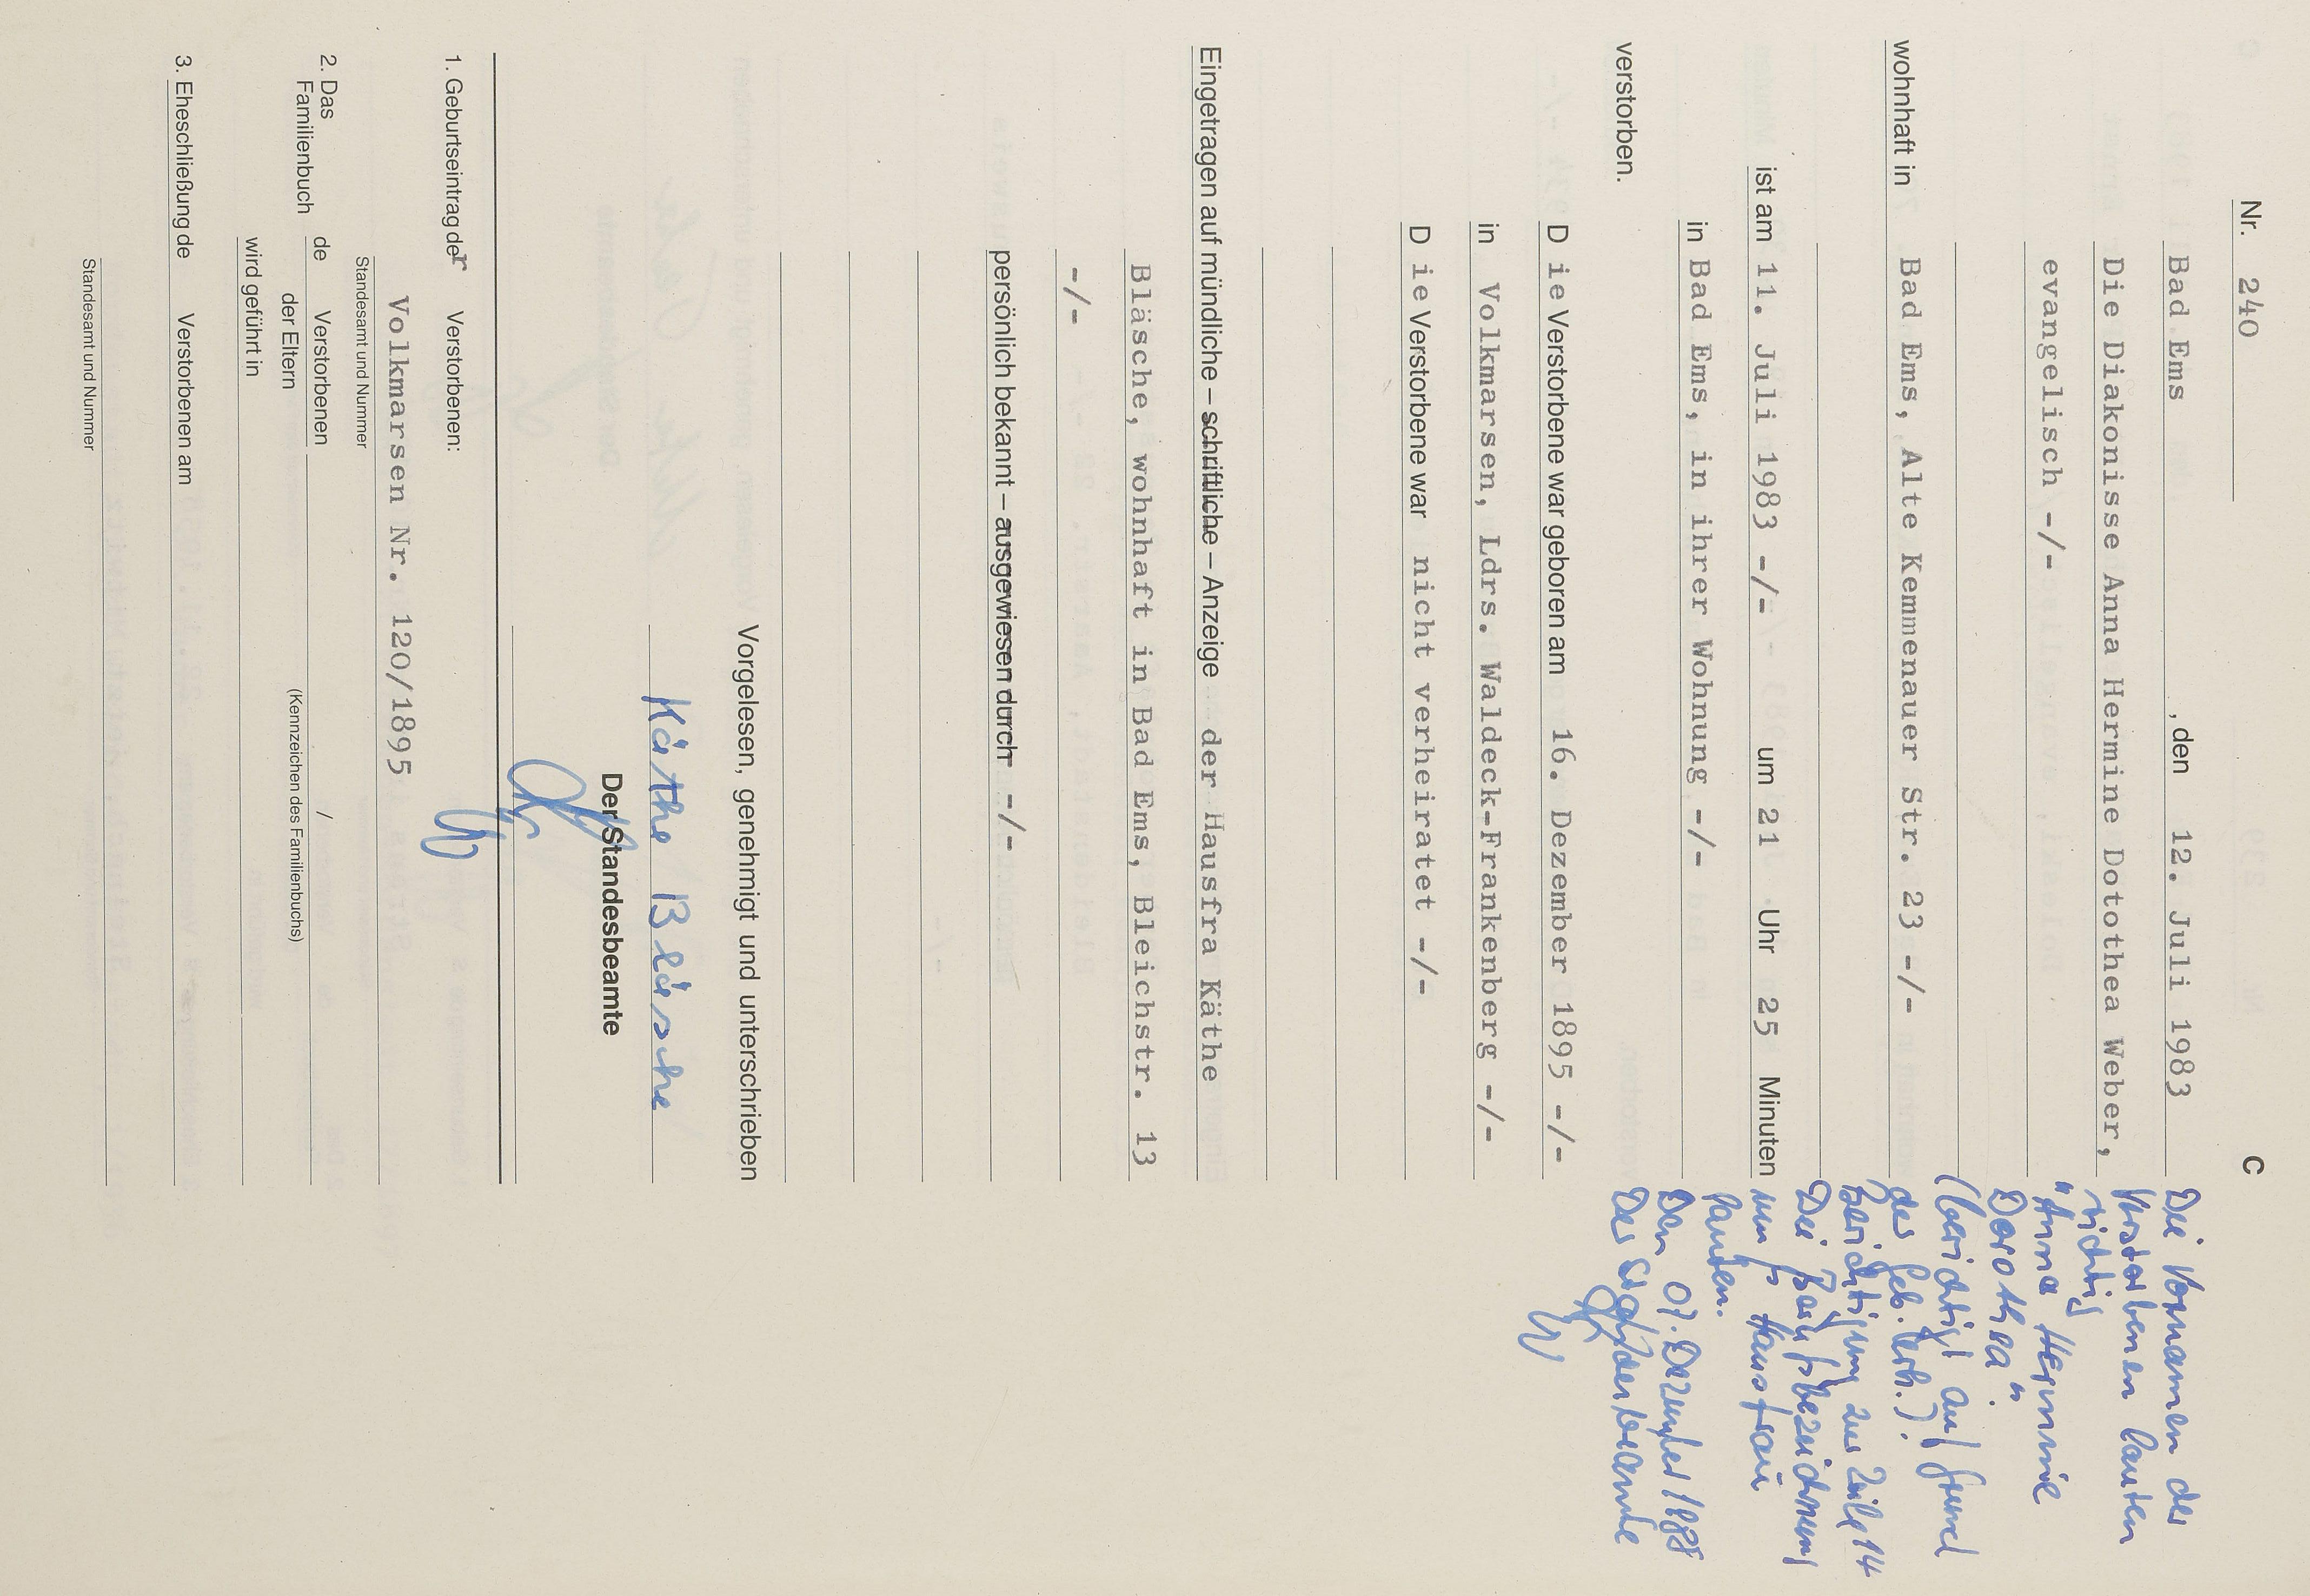 C
Nr. 240
Bad Ems , den 12. Juli 1983
Die Diakonisse Anna Hermine Dotothea Weber,
evangelisch -/-
wohnhaft in Bad Ems, Alte Kemmenauer Str. 23 -/-
ist am 11. Juli 1983 -/- um 21 Uhr 25 Minuten
in Bad Ems, in ihrer Wohnung -/-
verstorben.
D ie Verstorbene war geboren am 16. Dezember 1895 -/-
in Volkmarsen, Ldrs. Waldeck-Frankenberg -/-
D ie Verstorbene war nicht verheiratet -/-
Eingetragen auf mündliche – schriftliche – Anzeige der Hausfra Käthe
Bläsche, wohnhaft in Bad Ems, Bleichstr. 13
-/-
persönlich bekannt – ausgewiesen durch -/-
Vorgelesen, genehmigt und unterschrieben
Käthe Bläsche
Der Standesbeamte
1. Geburtseintrag der Verstorbenen:
Volkmarsen Nr. 120/1895
Standesamt und Nummer
2. Das Familienbuch de Verstorbenen / der Eltern
(Kennzeichen des Familienbuchs)
wird geführt in
3. Eheschließung de Verstorbenen am
Standesamt und Nummer
Die Vornamen der
Verstorbenen lauten
richtig
"Anna Hermine
Dorothea".
(berichtigt auf Grund
der Geb. Urk.).
Berichtigung zur Zeile 14
Die Berufsbezeichnung
muß Hausfrau
lauten.
Den 07. Dezember 1988
Der Standesbeamte